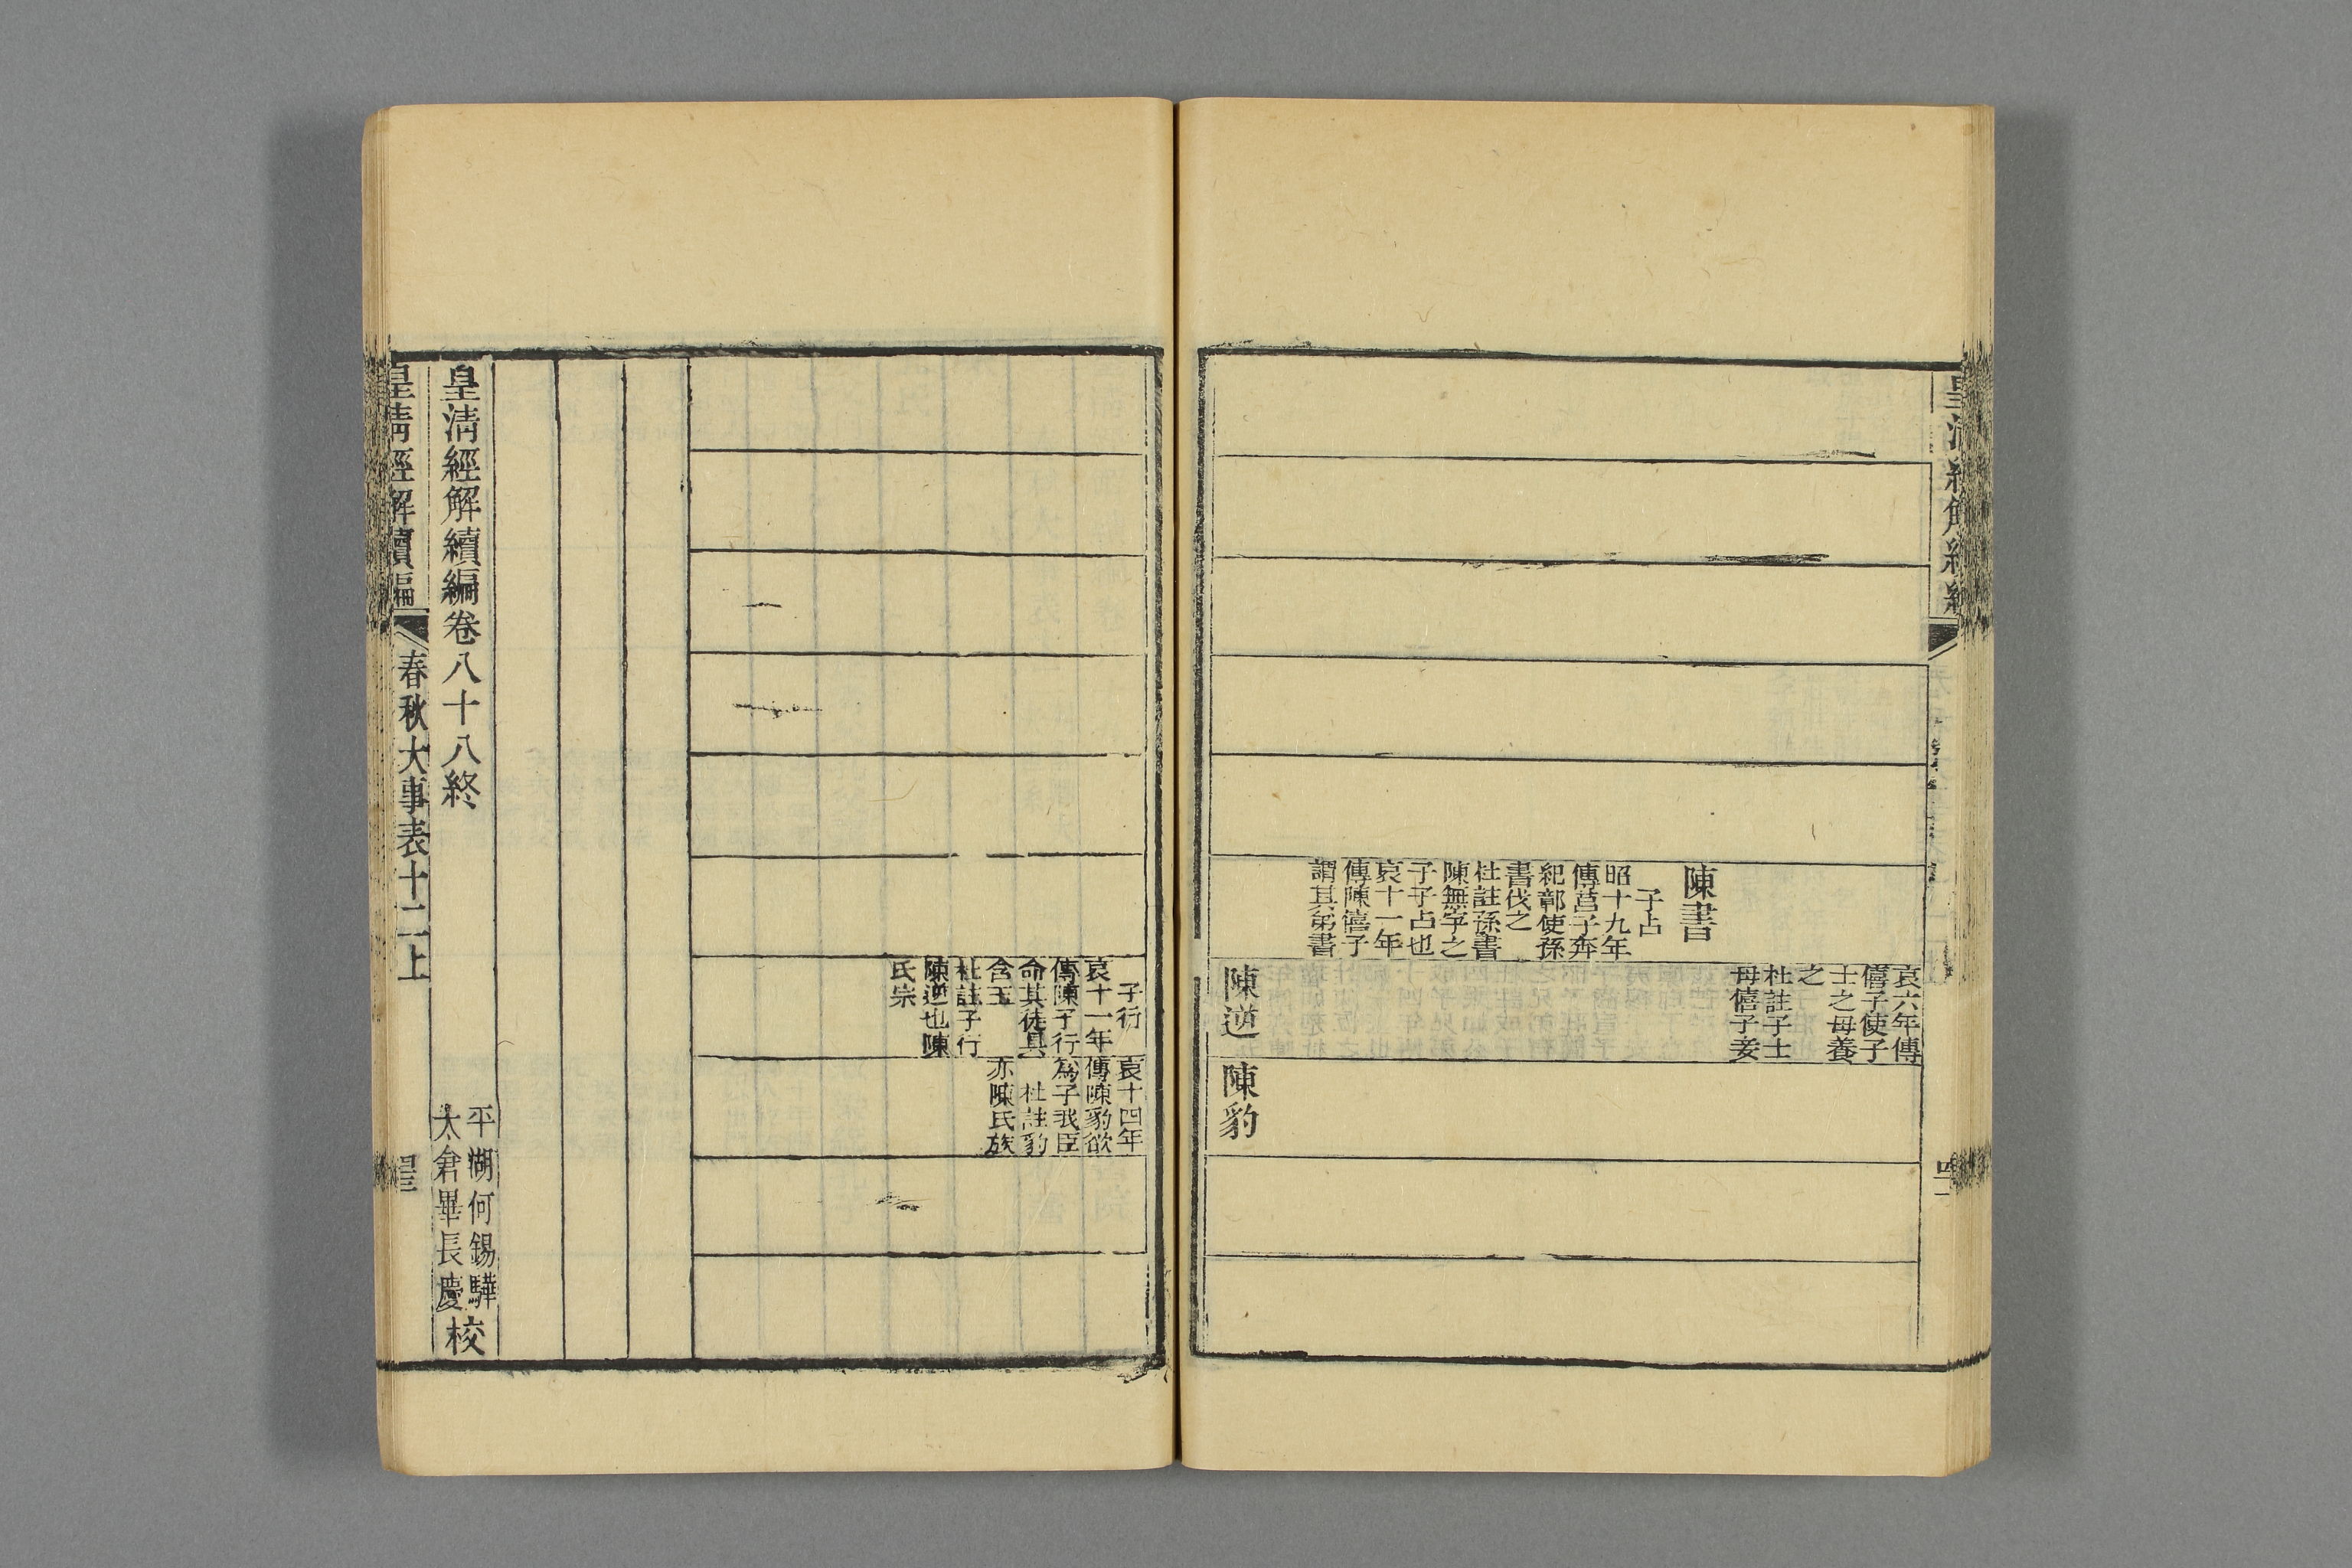 陳書
子占
昭十九年
傳莒子奔
紀鄣使孫
書伐之
杜註孫書
陳無宇之
子子占也
哀十一年
傳陳僖子
謂其弟書
哀六年傳
僖子使子
士之母養
之
杜註子士
母僖子妾
陳逆
陳豹
子行
哀十一年
傳陳子行
命其徒具
含玉
杜註子行
陳逆也陳
氏宗
哀十四年
傳陳豹欲
爲子我臣
杜註豹
亦陳氏族
皇清經解續編卷八十八終
平湖何錫驊
太倉畢長慶校
皇清經解續編
春秋大事表十二上